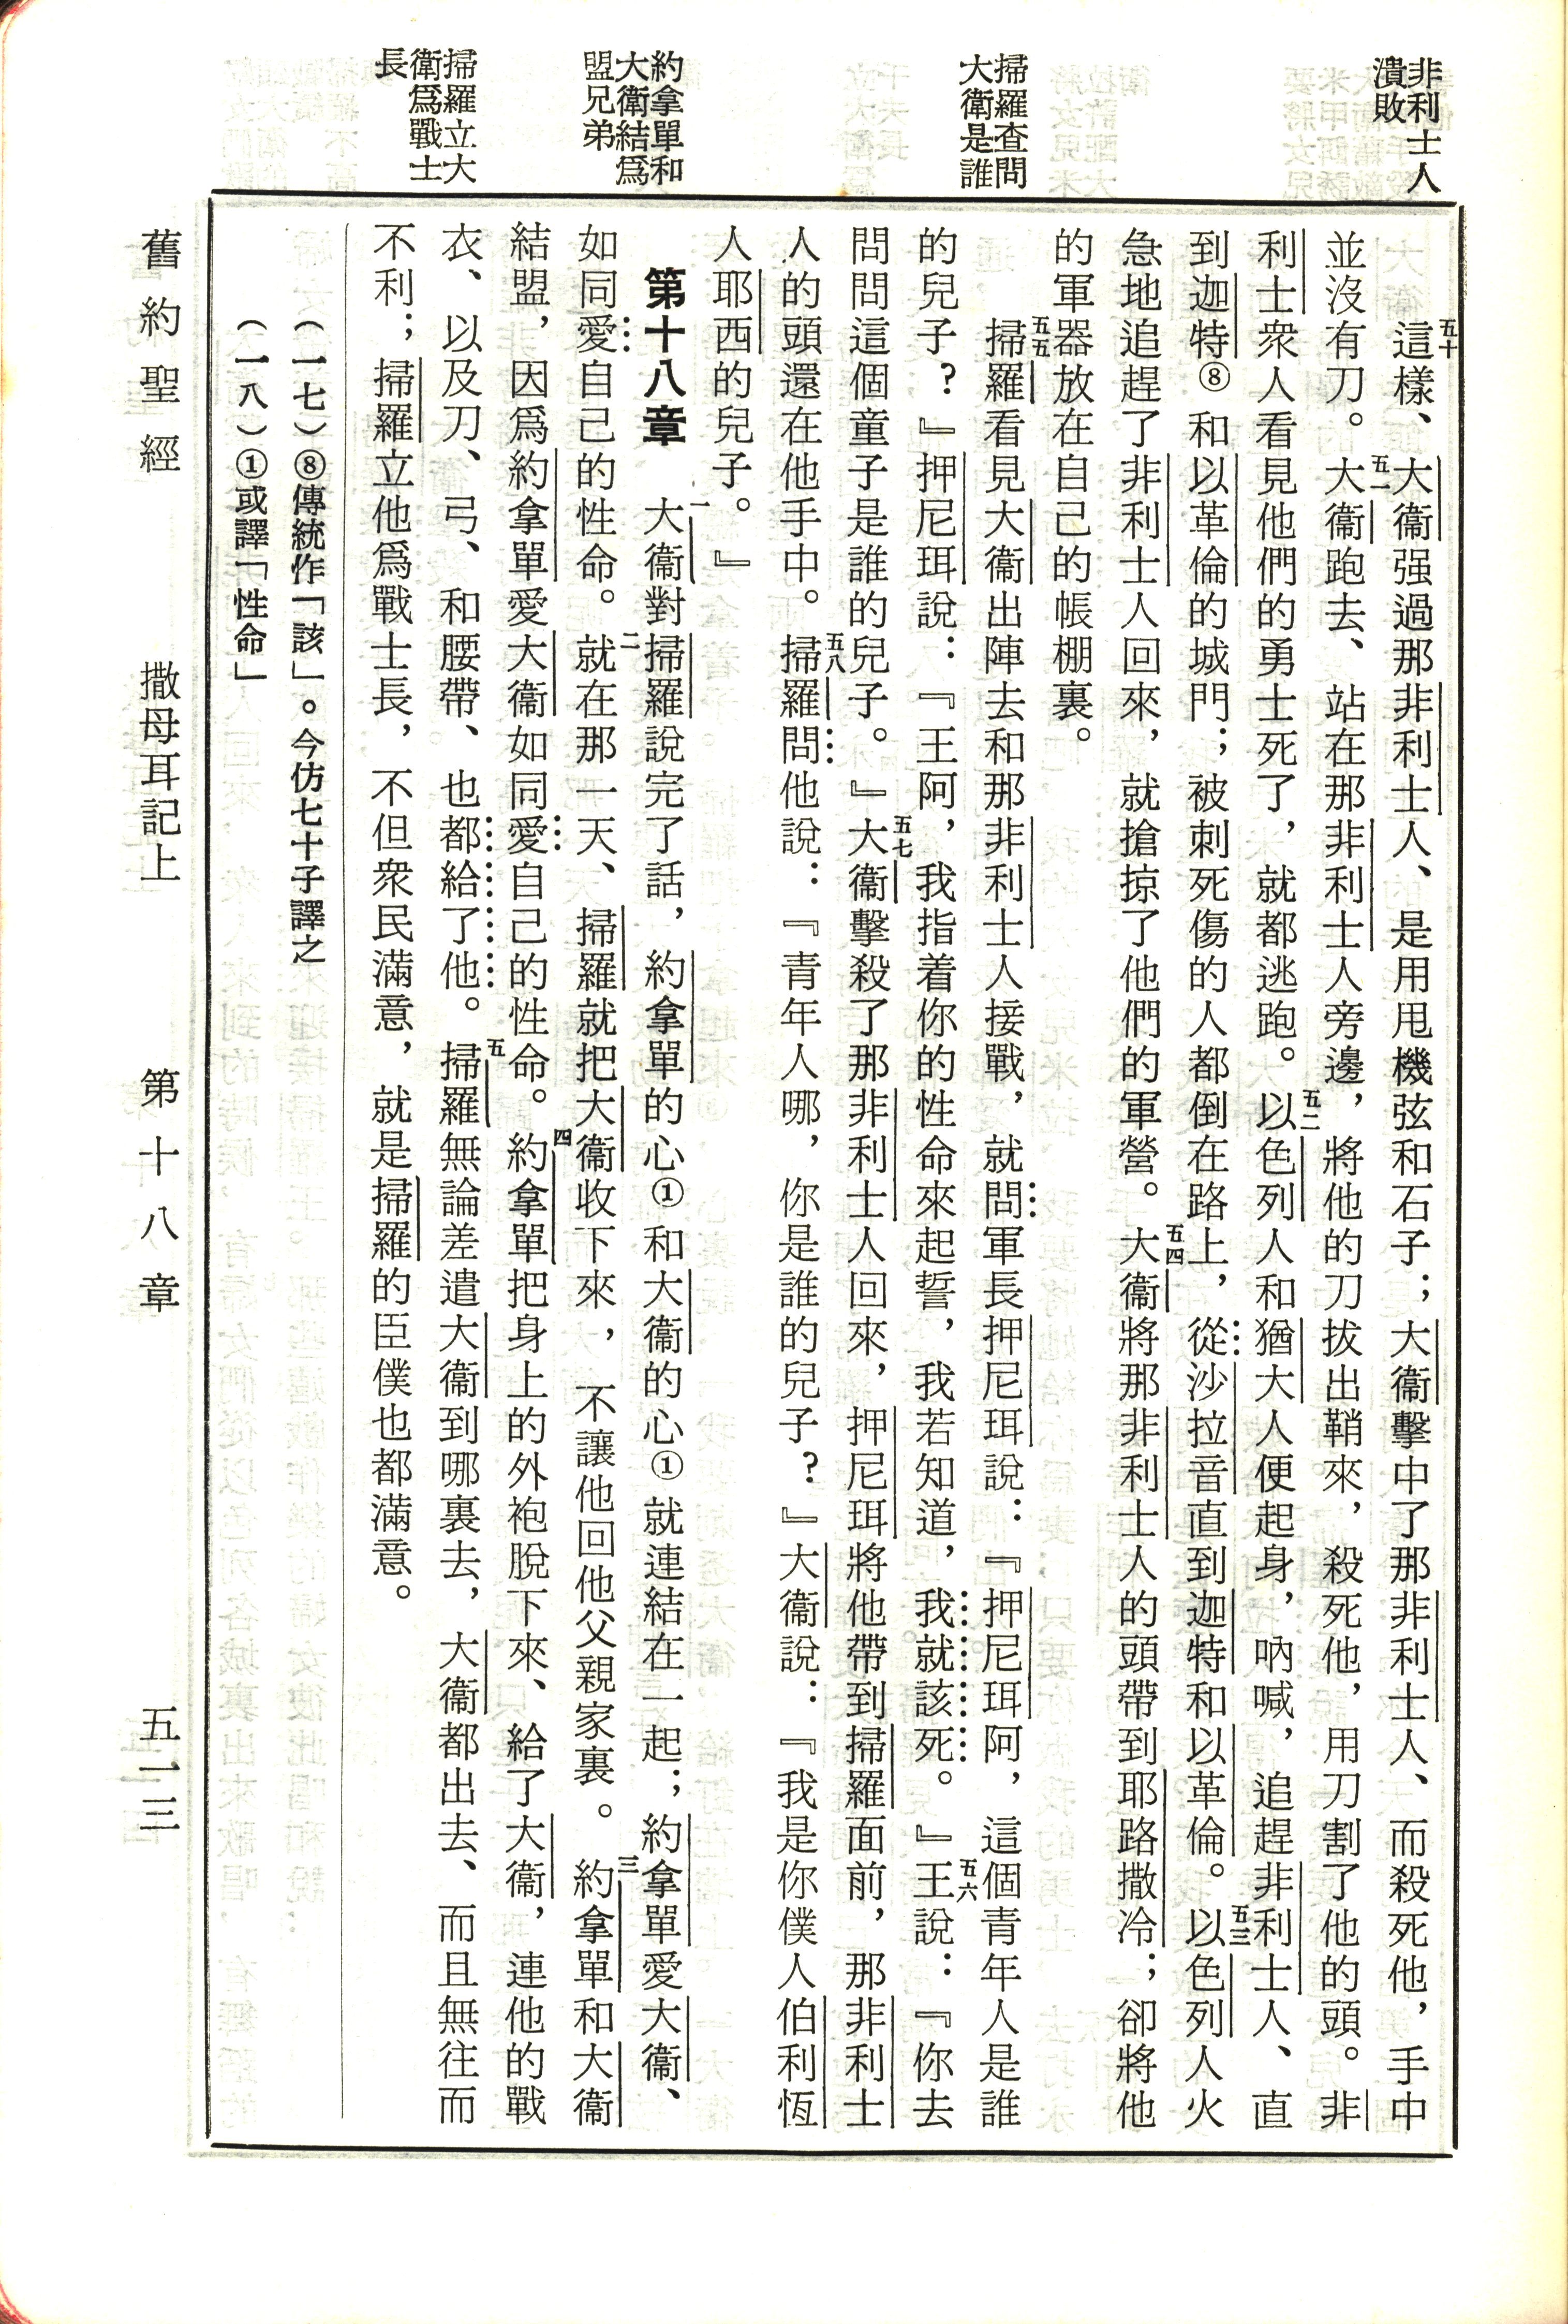 非利士人
潰敗
掃羅查問
大衛是誰
約拿單和
大衛結爲
盟兄弟
掃羅立大
衛爲戰士
長
五十這樣、大衛强過那非利士人、是用甩機弦和石子；大衛擊中了那非利士人、而殺死他，手中
並沒有刀。五一大衛跑去、站在那非利士人旁邊，將他的刀拔出鞘來，殺死他，用刀割了他的頭。非
利士衆人看見他們的勇士死了，就都逃跑。五二以色列人和猶大人便起身，吶喊，追趕非利士人、直
到迦特⑧和以革倫的城門；被刺死傷的人都倒在路上，從沙拉音直到迦特和以革倫。五三以色列人火
急地追趕了非利士人回來，就搶掠了他們的軍營。五四大衛將那非利士人的頭帶到耶路撒冷；卻將他
的軍器放在自己的帳棚裏。
五五掃羅看見大衛出陣去和那非利士人接戰，就問軍長押尼珥說：『押尼珥阿，這個青年人是誰
的兒子？』押尼珥說：『王阿，我指着你的性命來起誓，我若知道，我就該死。』五六王說：『你去
問問這個童子是誰的兒子。』五七大衛擊殺了那非利士人回來，押尼珥將他帶到掃羅面前，那非利士
人的頭還在他手中。五八掃羅問他說：『青年人哪，你是誰的兒子？』大衛說：『我是你僕人伯利恆
人耶西的兒子。』
第十八章　一大衛對掃羅說完了話，約拿單的心①和大衛的心①就連結在一起；約拿單愛大衛、
如同愛自己的性命。二就在那一天、掃羅就把大衛收下來，不讓他回他父親家裏。三約拿單和大衛
結盟，因爲約拿單愛大衛如同愛自己的性命。四約拿單把身上的外袍脫下來、給了大衛，連他的戰
衣、以及刀、弓、和腰帶、也都給了他。五掃羅無論差遣大衛到哪裏去，大衛都出去、而且無往而
不利；掃羅立他爲戰士長，不但衆民滿意，就是掃羅的臣僕也都滿意。
（一七）⑧傳統作「該」。今仿七十子譯之
（一八）①或譯「性命」
舊約聖經　撒母耳記上　第十八章　五一三